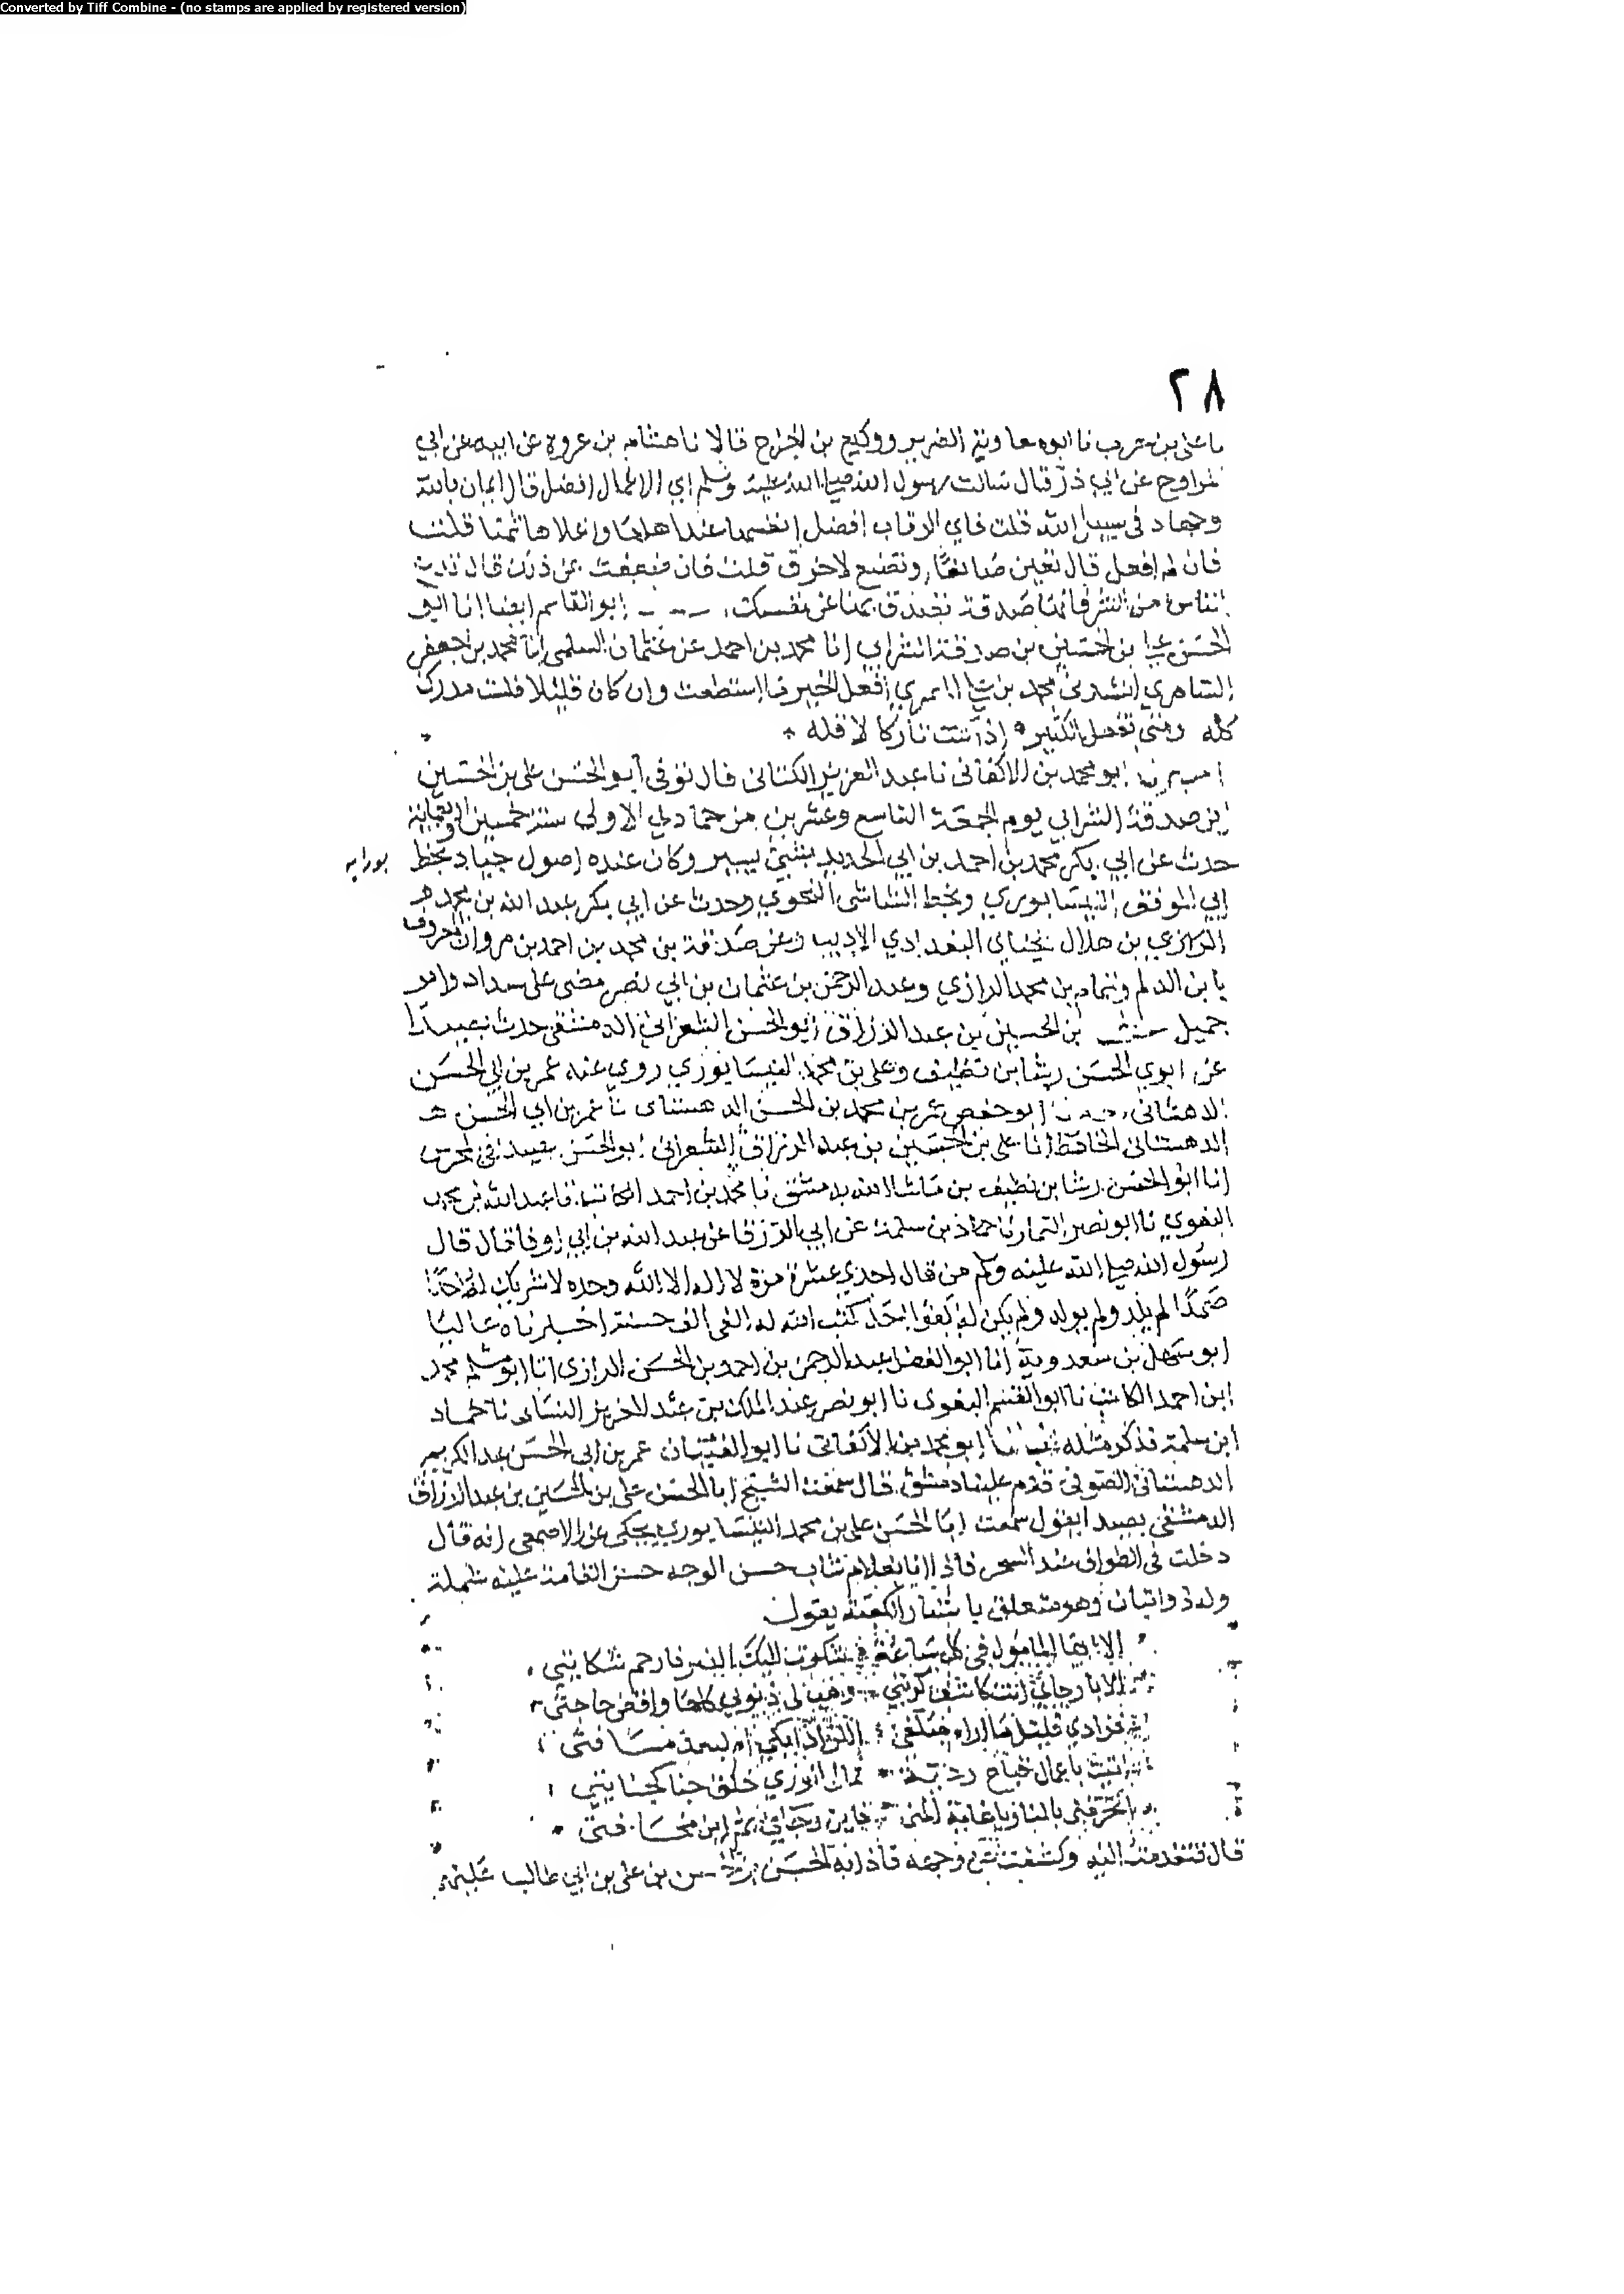 Converted by Tiff Combine - (no stamps are applied by registered version)
٢٨
نا على بن حرب نا ابو معاوية الضرير ووكيع بن الجراح قالا نا هشام بن عروة عن ابيه عن ابي
مراوح عن ابي ذر قال سالت رسول الله صلى الله عليه وسلم اي الاعمال افضل قال ايمان بالله
وجهاد فى سبيل الله قلت فاي الرقاب افضل انفسها عند اهلها واغلاها ثمنا قلت
فان لم افعل قال تعين صانعا وتصنع لاخرق قلت فان ضعفت عن ذلك قال تدع
الناس من الشر فانها صدقة تصدق بها عن نفسك ابو القاسم ايضا انا ابي
الحسن علي بن الحسين بن صدقة الشرابي انا محمد بن احمد عن عثمان السلمى انا محمد بن جعفر
السامري انشدنى محمد بن افعل الخير ما استطعت وان كان قليلا فلست مدرك
كله ومتى تفعل الكثير اذا كنت تاركا لاقله
ابو محمد بن الاكفانى نا عبد العزيز الكتانى قال توفى ابو الحسن على بن الحسين
ابن صدقة الشرابي يوم الجمعة التاسع وعشرين من جمادي الاولى سنة خمسين واربعماية
حدث عن ابي بكر محمد بن احمد بن ابي الحديد بشئ يسير وكان عنده اصول جياد بخط
ابي الموفق النيسابوري وبخط الشاشى النحوي وحدث عن ابي بكر عبد الله بن محمد
الرازي بن هلال البغدادي الاديب وعن صدقة بن محمد بن احمد بن مروان المعروف
يا بن الدلم وتمام بن محمد الرازي وعبد الرحمن بن عثمان بن ابي نصر مضى على سداد وامر
جميل بن الحسين بن عبد الرزاق ابو الحسن الشعرانى الدمشقى حدث بصيدا
عن ابوي الحسن رشا بن نظيف وعلى بن محمد النيسابوري روي عنه عمر بن ابي الحسن
الدهستانى ابو حفص عمر بن محمد بن الحسن الدهستانى نا عمر بن ابي الحسن
الدهستانى الحافظ انا على بن الحسين بن عبد الرزاق الشعرانى ابو الحسن بصيدا
انا ابو الحسن رشا بن نظيف بن ماشا الله بدمشق نا محمد بن احمد الكاتب نا عبد الله بن محمد
البغوي نا ابو نصر التمار نا حماد بن سلمة عن ابي الورقا عن عبد الله بن ابي اوفا قال قال
رسول الله صلى الله عليه وسلم من قال احدي عشرة مرة لا اله الا الله وحده لا شريك له احدا
صمدا لم يلد ولم يولد ولم يكن له كفوا احد كتب الله له الفى الف حسنة اخبرناه عاليا
ابو سهل بن سعدوية انا ابو الفضل عبد الرحمن بن احمد بن الحسن الرازي انا ابو مسلم محمد
ابن احمد الكاتب نا ابو القسم البغوى نا ابو نصر عبد الملك بن عبد العزيز النسائى نا حماد
ابن سلمة فذكر مثله ابو محمد بن الاكفانى نا ابو الفتيان عمر بن ابي الحسن عبد الكريم
الدهستانى الصوفى قدم علينا دمشق قال سمعت الشيخ ابا الحسن على بن الحسين بن عبد الرزاق
الدمشقى بصيدا يقول سمعت ابا الحسن على بن محمد النيسابوري يحكى عن الاصمعى انه قال
دخلت فى الطواف عند السحر فاذا انا بغلام شاب حسن الوجه حسن القامة عليه شملة
وله ذوابتان وهو متعلق باستار الكعبة يقول
الا ايها المامول فى كل ساعة شكوت اليك الضر فارحم شكايتى
الا يا رجائي انت كاشف كربتي وهب لى ذنوبي كلها واقض حاجتى
فزادي قليل ما اراه مبلغى اللزاد ابكي ام لبعد مسافتى
اتيت باعمال قباح ردية فما فى الوري خلق جنا كجنايتي
اتحرقنى بالنار يا غاية المنى فاين رجائي ثم اين مخافتى
قال فتقدمت اليه وكشفت عن وجهه فاذا به الحسن بن على بن ابي طالب عليهم